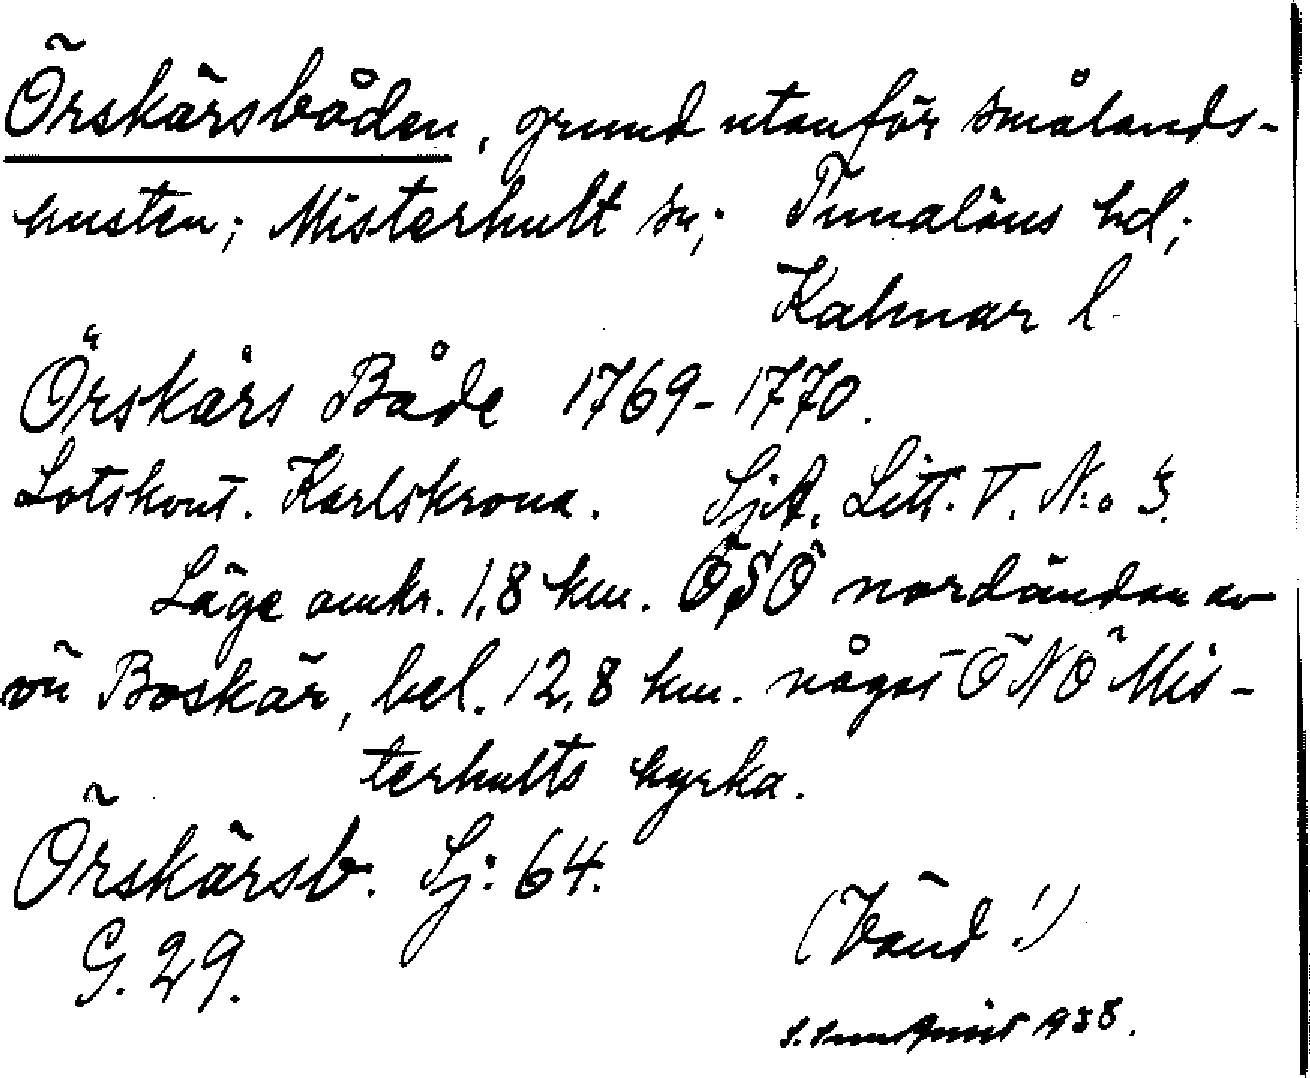 Örskärsbåden, grund utanför smålands-
kusten; Misterhult sn; Tunaläns hd;
Kalmar l.
Örskärs Både 1769-1770.
Lotskont. Karlskrona. SjA. Litt. V. N:o 3.
Läge omkr. 1,8 km. OSO nordändan av
ön Boskär, bel. 12,8 km. något ONO Mis-
terhults kyrka.
Örskärsb. Sj: 64.
G. 29.
(Vänd!)
1938.